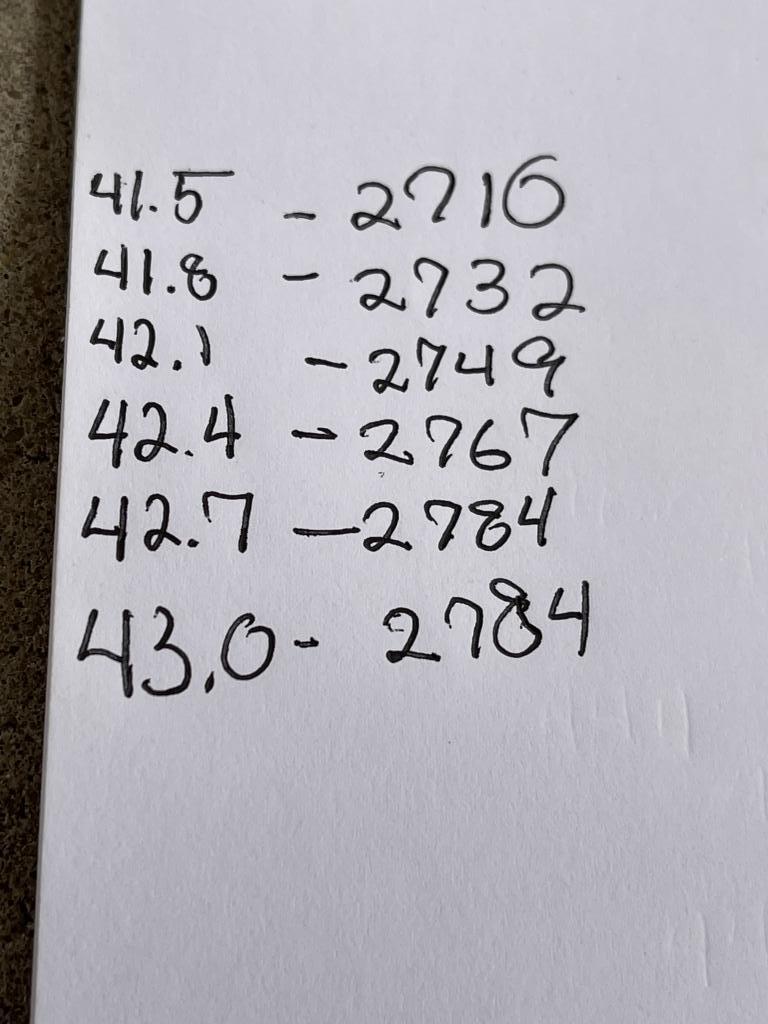 41.5 - 2716
41.8 - 2732
42.1 - 2749
42.4 - 2767
42.7 - 2784
43.0 - 2784